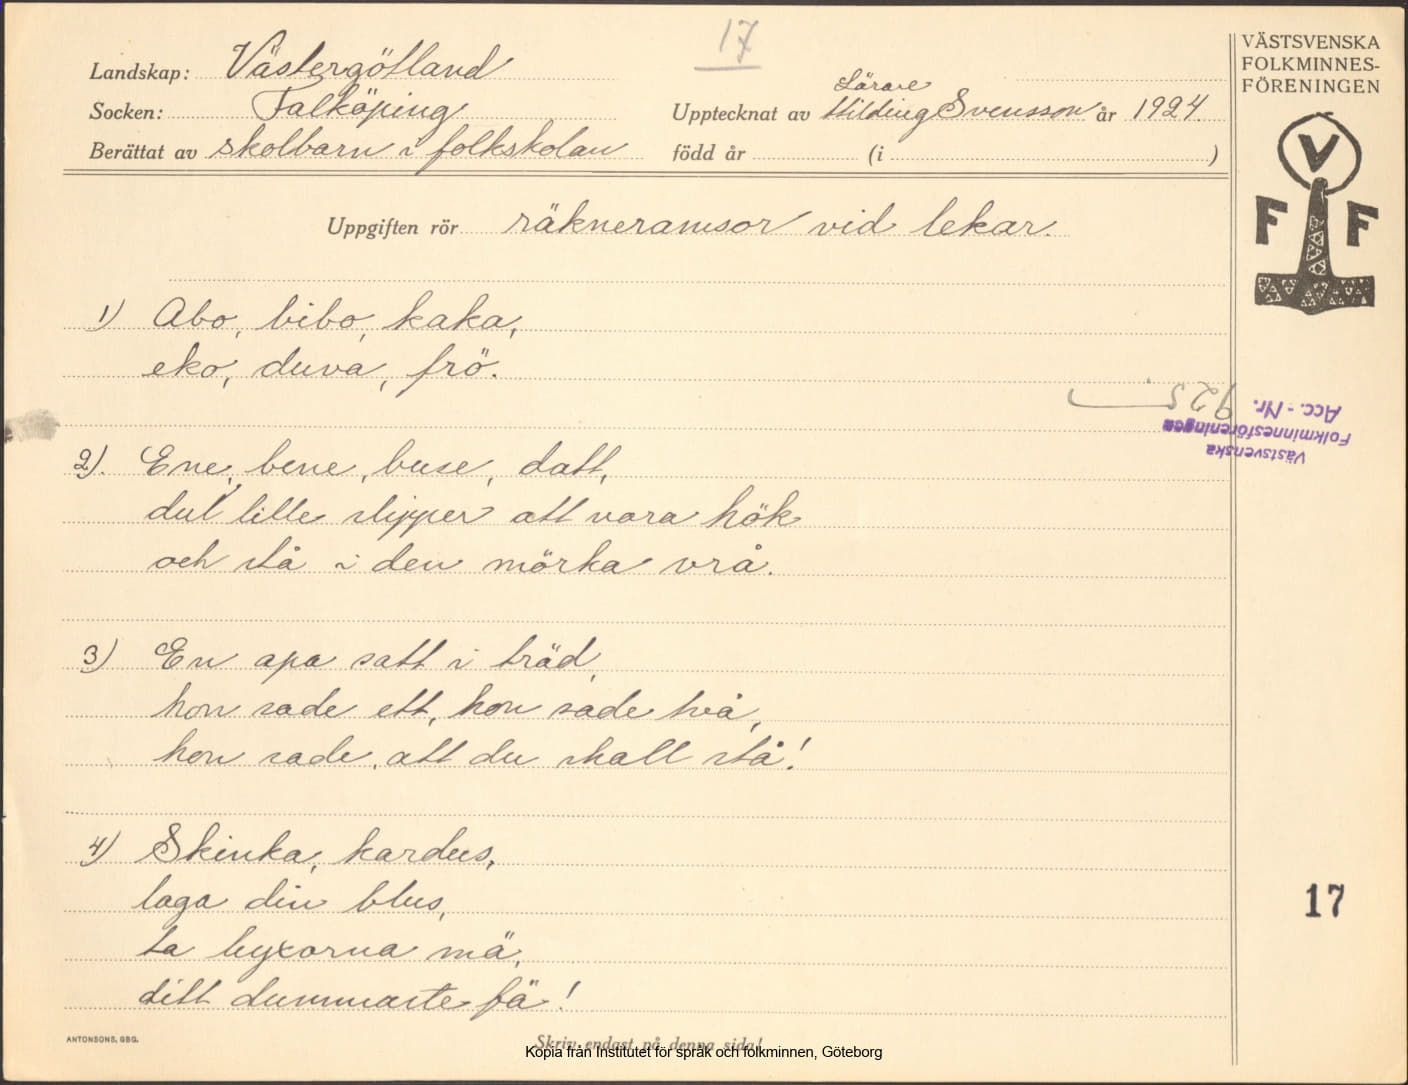 17
VÄSTSVENSKA
FOLKMINNES-
FÖRENINGEN
Landskap: Västergötland
Socken: Falköping
Lärare
Upptecknat av Hilding Svensson år 1924.
Berättat av skolbarn i folkskolan
född år (i )
V
F F
Uppgiften rör räkneramsor vid lekar.
1) Abo, bibo, kaka,
eko, duva, frö.
Västsvenska
Folkminnesföreningen
Acc.-Nr. 925
2). Ene, bene, buse, datt,
du lille slipper att vara hök
och stå i den mörka vrå.
3) En apa satt i träd,
hon sade ett, hon sade två,
hon sade, att du skall stå!
4) Skinka, kardus,
laga din blus,
ta byxorna mä,
ditt dummaste fä!
17
ANTONSONS, GBG.
Skriv endast på denna sida!
Kopia från Institutet för språk och folkminnen, Göteborg